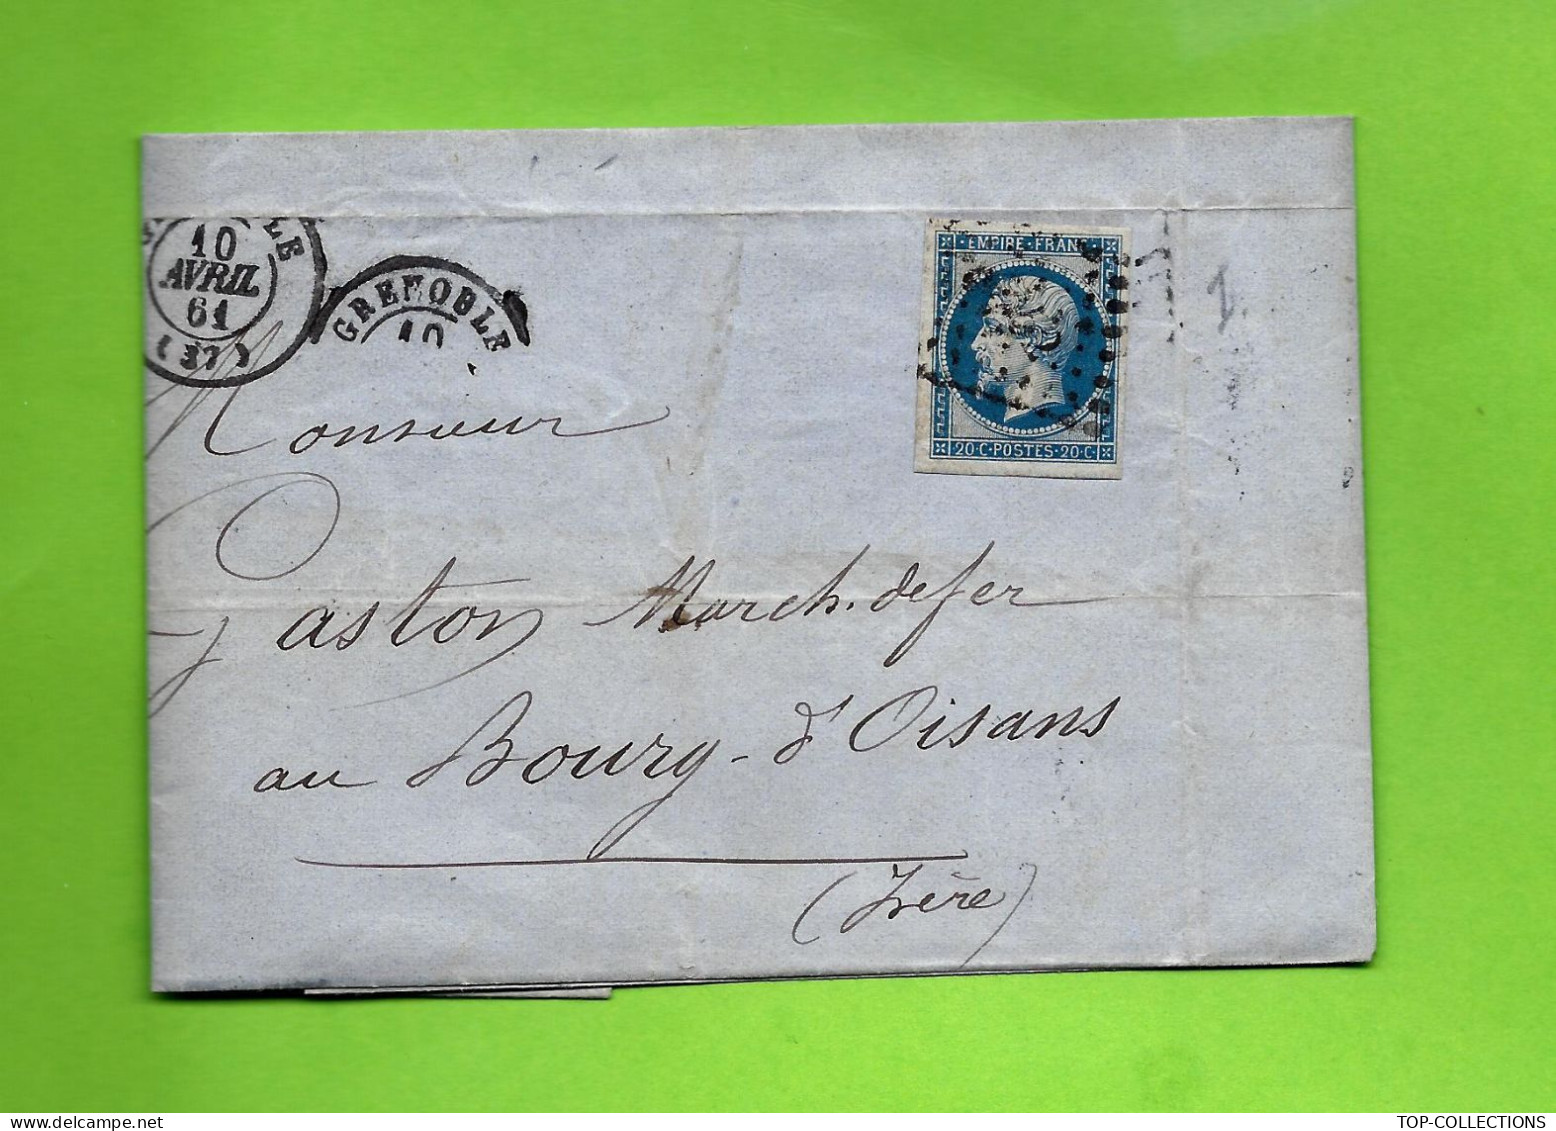 LE
10
AVRIL
61
(37)
GRENOBLE
10
EMPIRE·FRANC
20·C·POSTES·20·C·
Monsieur
Gaston March. de fer
au Bourg-d'Oisans
(Isère)
TOP-COLLECTIONS